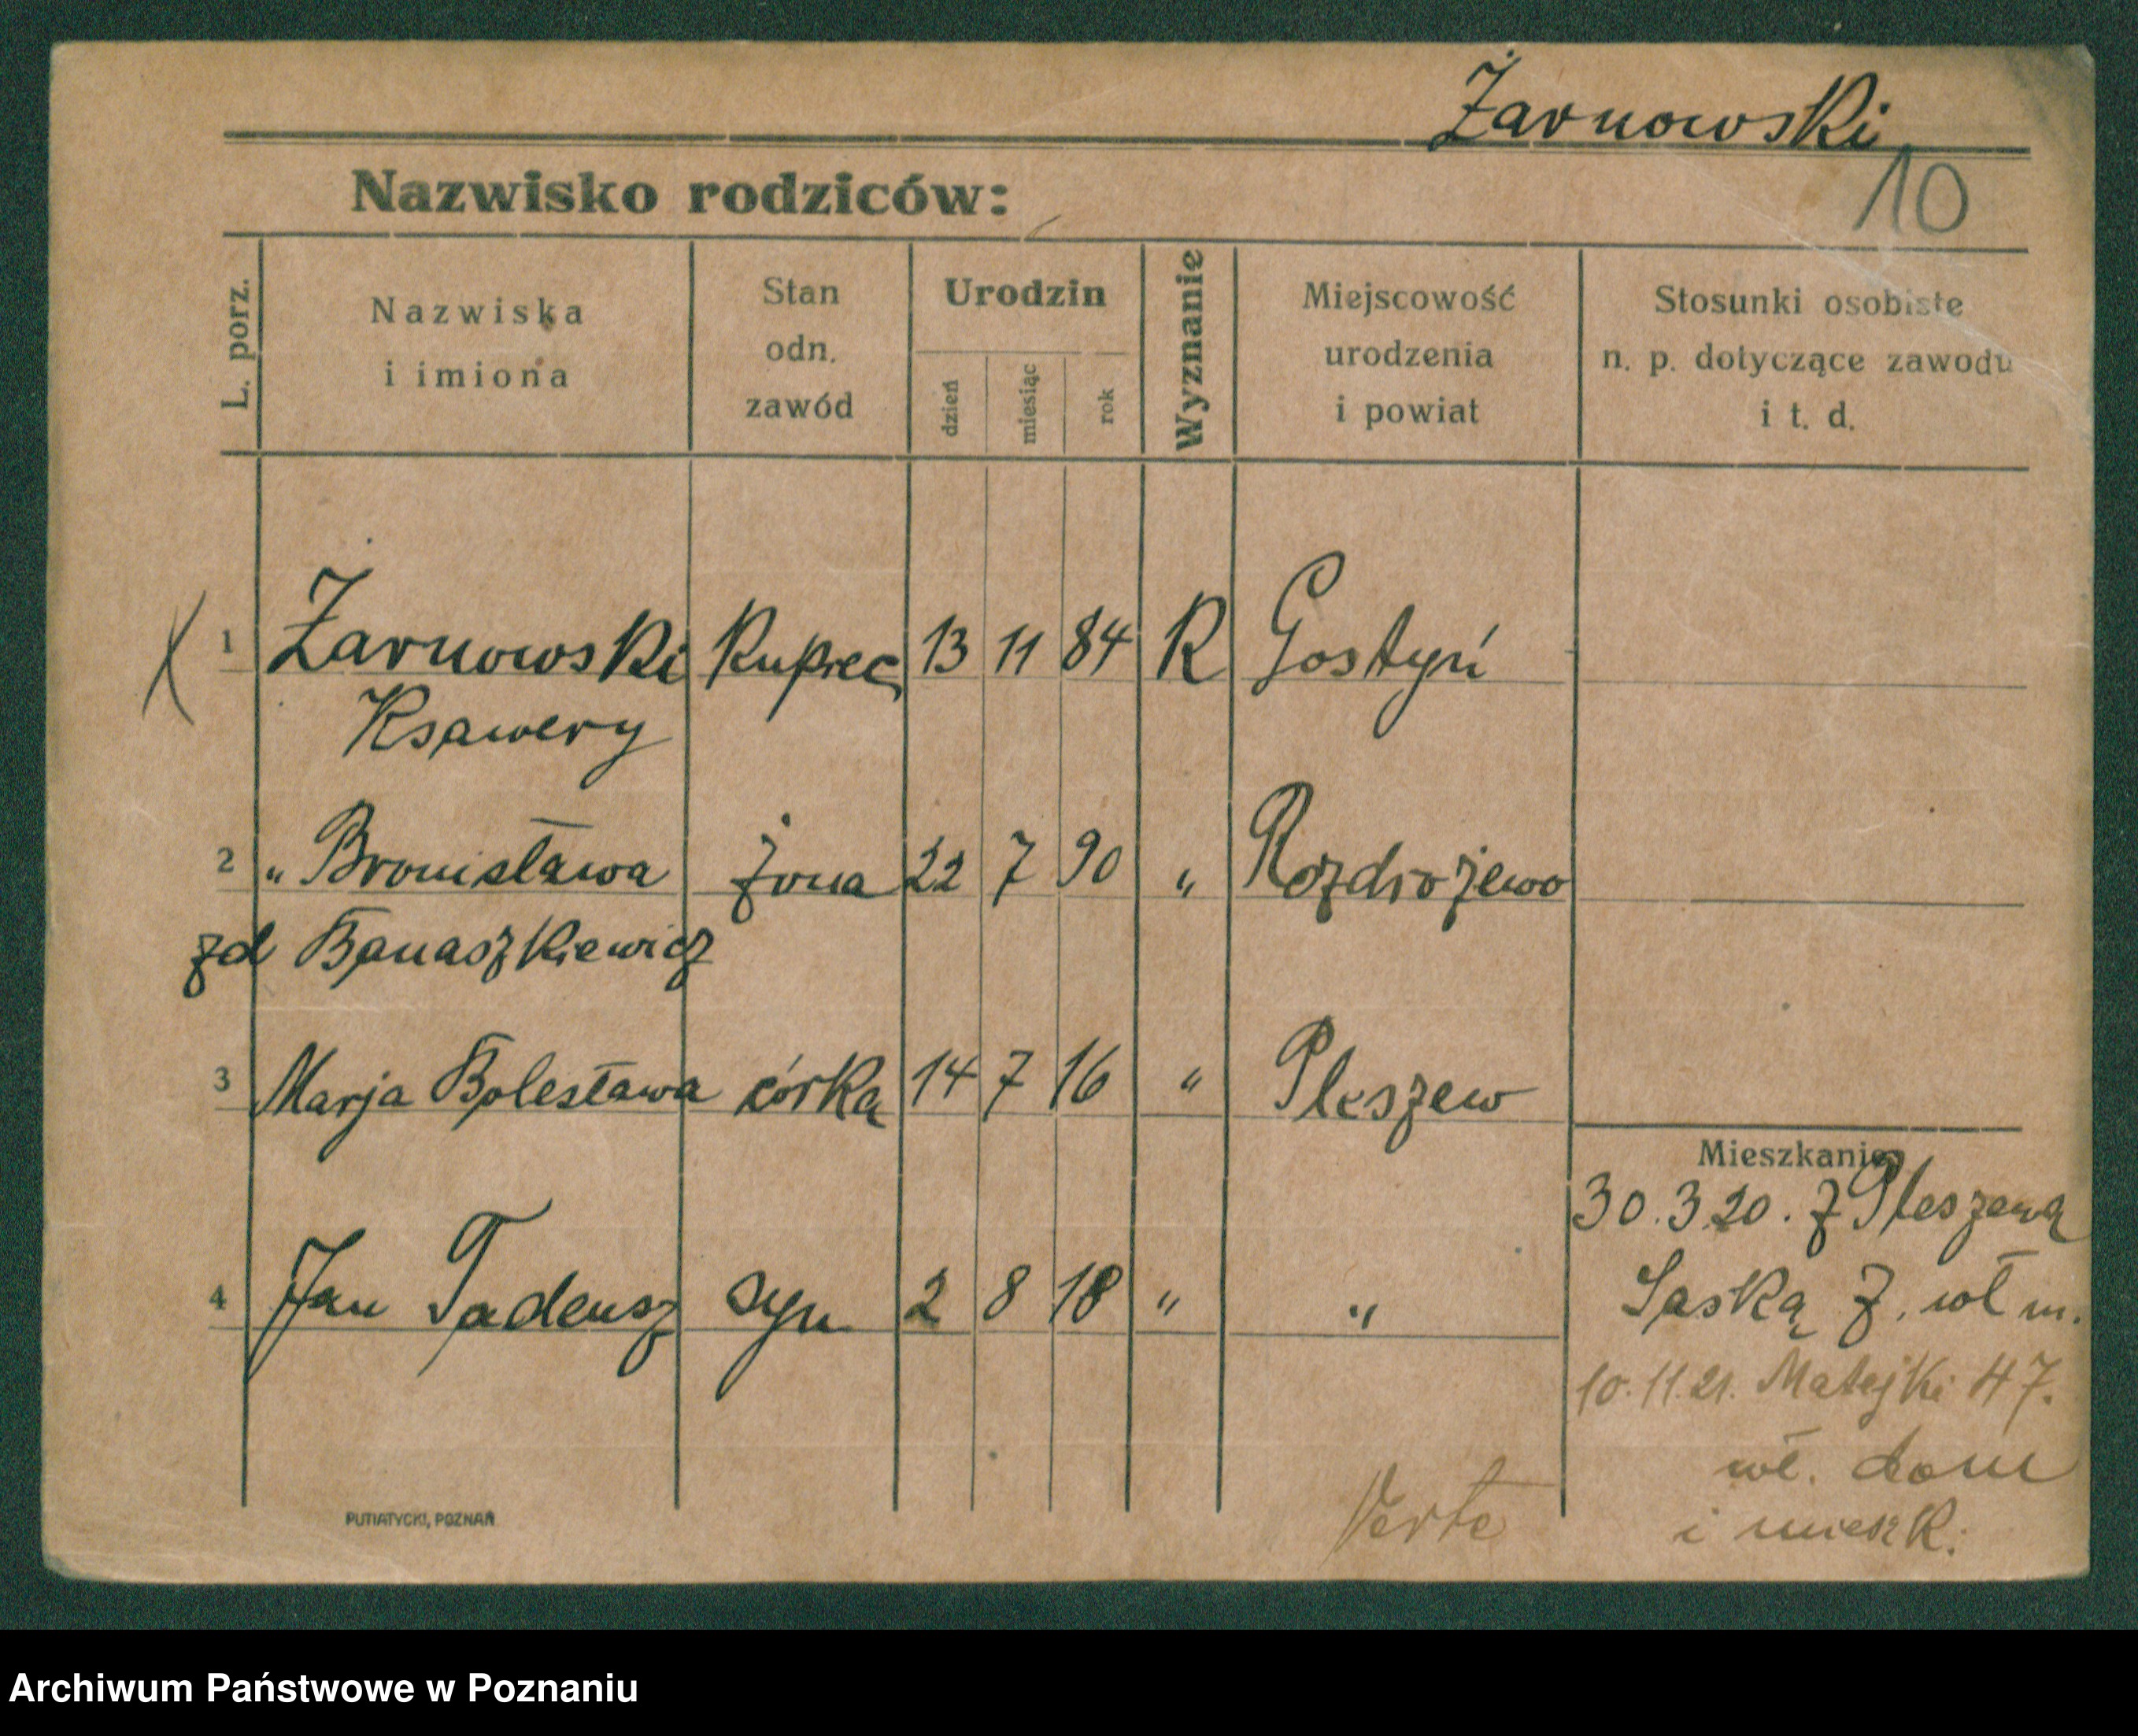 Żarnowski
10
Nazwisko rodziców:
L. porz.
Nazwiska
i imiona
Stan
odn.
zawód
Urodzin
dzień
miesiąc
rok
Wyznanie
Miejscowość
urodzenia
i powiat
Stosunki osobiste
n. p. dotyczące zawodu
i t. d.
1 Żarnowski Kupiec 13 11 84 R Gostyń
Ksawery
2 „ Bronisława żona 22 7 90 „ Rozdrożewo
zd Banaszkiewicz
3 Marja Bolesława córka 14 7 16 „ Pleszew
Mieszkanie
30.3.20. z Pleszewa
4 Jan Tadeusz syn 2 8 18 „ „
Saska 7. wł m.
10.11.21. Matejki 47.
wł. dom
i mieszk.
Verte
PUTIATYCKI, POZNAŃ
Archiwum Państwowe w Poznaniu